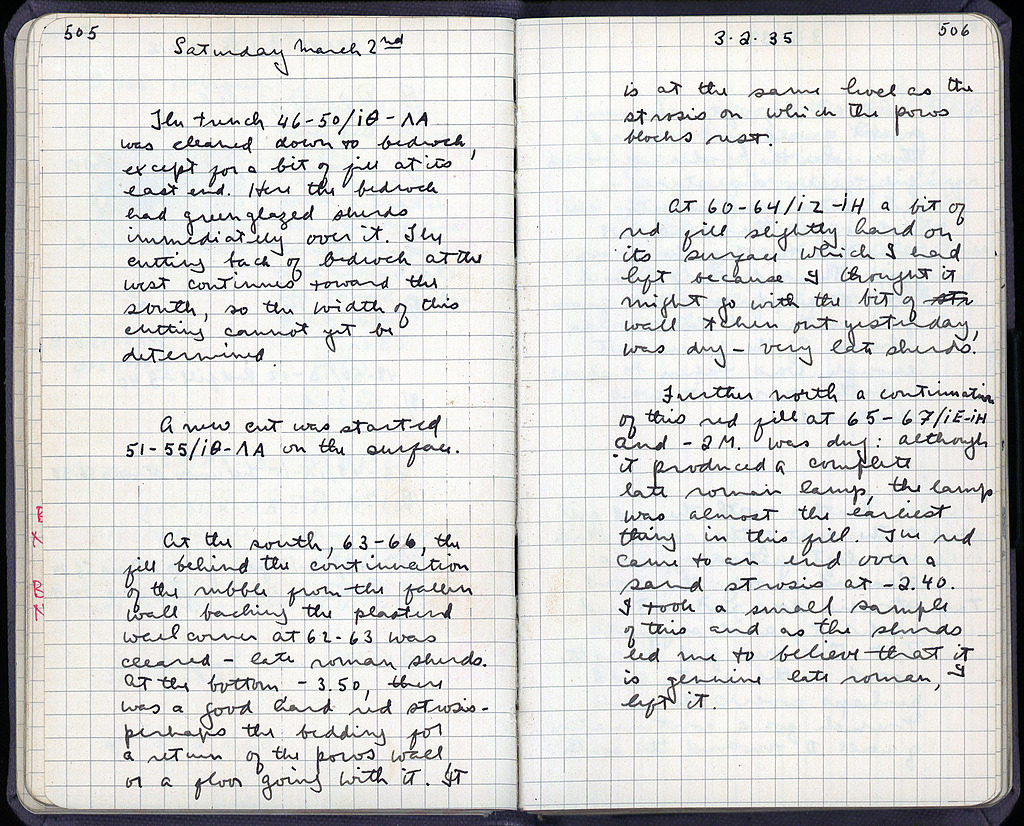 505
Saturday March 2nd
The trench 46-50/ΙΘ-ΛΑ
was cleaned down to bedrock,
except for a bit of fill at its
east end. Here the bedrock
had green glazed sherds
immediately over it. The
cutting back of bedrock at the
west continues toward the
south, so the width of this
cutting cannot yet be
determined.
A new cut was started
51-55/ΙΘ-ΛΑ on the surface.
At the south, 63-66, the
fill behind the continuation
of the rubble from the fallen
wall backing the plastered
wall corner at 62-63 was
cleared - late roman sherds.
At the bottom, -3.50, there
was a good hard red strosis -
perhaps the bedding for
a return of the poros wall
or a floor going with it. It
3.2.35
506
is at the same level as the
strosis on which the poros
blocks rest.
At 60-64/ΙΖ-ΙΗ a bit of
red fill slightly hard on
its surface which I had
left because I thought it
might go with the bit of str
wall taken out yesterday,
was dug - very late sherds.
Further north a continuation
of this red fill at 65-67/ΙΕ-ΙΗ
and -2M. was dug: although
it produced a complete
late roman lamp, the lamp
was almost the earliest
thing in this fill. The red
came to an end over a
sand strosis at -2.40.
I took a small sample
of this and as the sherds
led me to believe that it
is genuine late roman, I
left it.